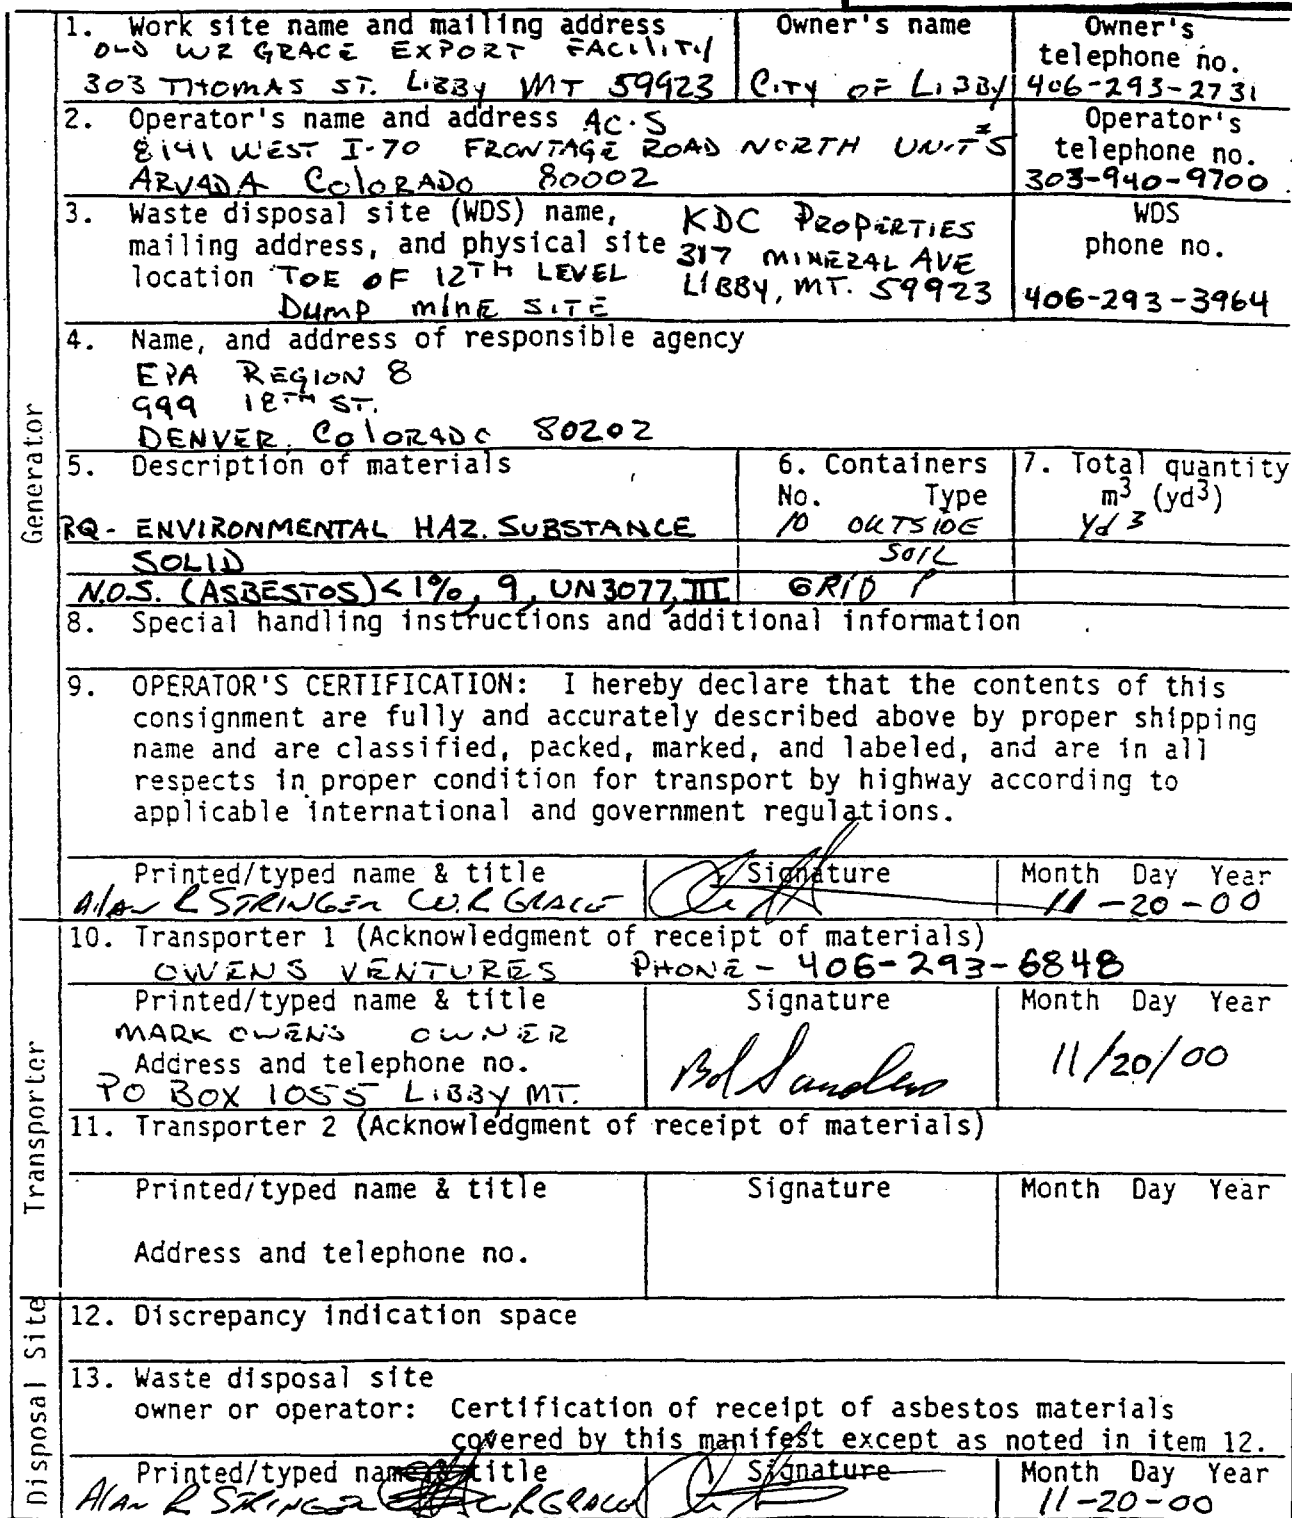 Generator
1. Work site name and mailing address
OLD WR GRACE EXPORT FACILITY
303 THOMAS ST. LIBBY MT 59923
Owner's name
CITY OF LIBBY
Owner's
telephone no.
406-293-2731
2. Operator's name and address AC·S
8141 WEST I-70 FRONTAGE ROAD NORTH UNIT #5
ARVADA COLORADO 80002
Operator's
telephone no.
303-940-9700
3. Waste disposal site (WDS) name,
mailing address, and physical site
location TOE OF 12TH LEVEL
DUMP MINE SITE
KDC PROPERTIES
317 MINERAL AVE
LIBBY, MT. 59923
WDS
phone no.
406-293-3964
4. Name, and address of responsible agency
EPA REGION 8
999 18TH ST.
DENVER, COLORADO 80202
5. Description of materials
RQ- ENVIRONMENTAL HAZ. SUBSTANCE
SOLID
N.O.S. (ASBESTOS) <1%, 9, UN3077, III
6. Containers
No. Type
10 OUTSIDE
SOIL
GRID P
7. Total quantity
m3 (yd3)
Yd 3
8. Special handling instructions and additional information
9. OPERATOR'S CERTIFICATION: I hereby declare that the contents of this
consignment are fully and accurately described above by proper shipping
name and are classified, packed, marked, and labeled, and are in all
respects in proper condition for transport by highway according to
applicable international and government regulations.
Printed/typed name & title
Alan R STRINGER W.R GRACE
Signature
Month Day Year
11-20-00
Transporter
10. Transporter 1 (Acknowledgment of receipt of materials)
OWENS VENTURES PHONE - 406-293-6848
Printed/typed name & title
MARK OWENS OWNER
Address and telephone no.
PO BOX 1055 LIBBY MT.
Signature
Bob Sanders
Month Day Year
11/20/00
11. Transporter 2 (Acknowledgment of receipt of materials)
Printed/typed name & title
Signature
Month Day Year
Address and telephone no.
Disposal Site
12. Discrepancy indication space
13. Waste disposal site
owner or operator: Certification of receipt of asbestos materials
covered by this manifest except as noted in item 12.
Printed/typed name & title
Alan R STRINGER W.R GRACE
Signature
Month Day Year
11-20-00